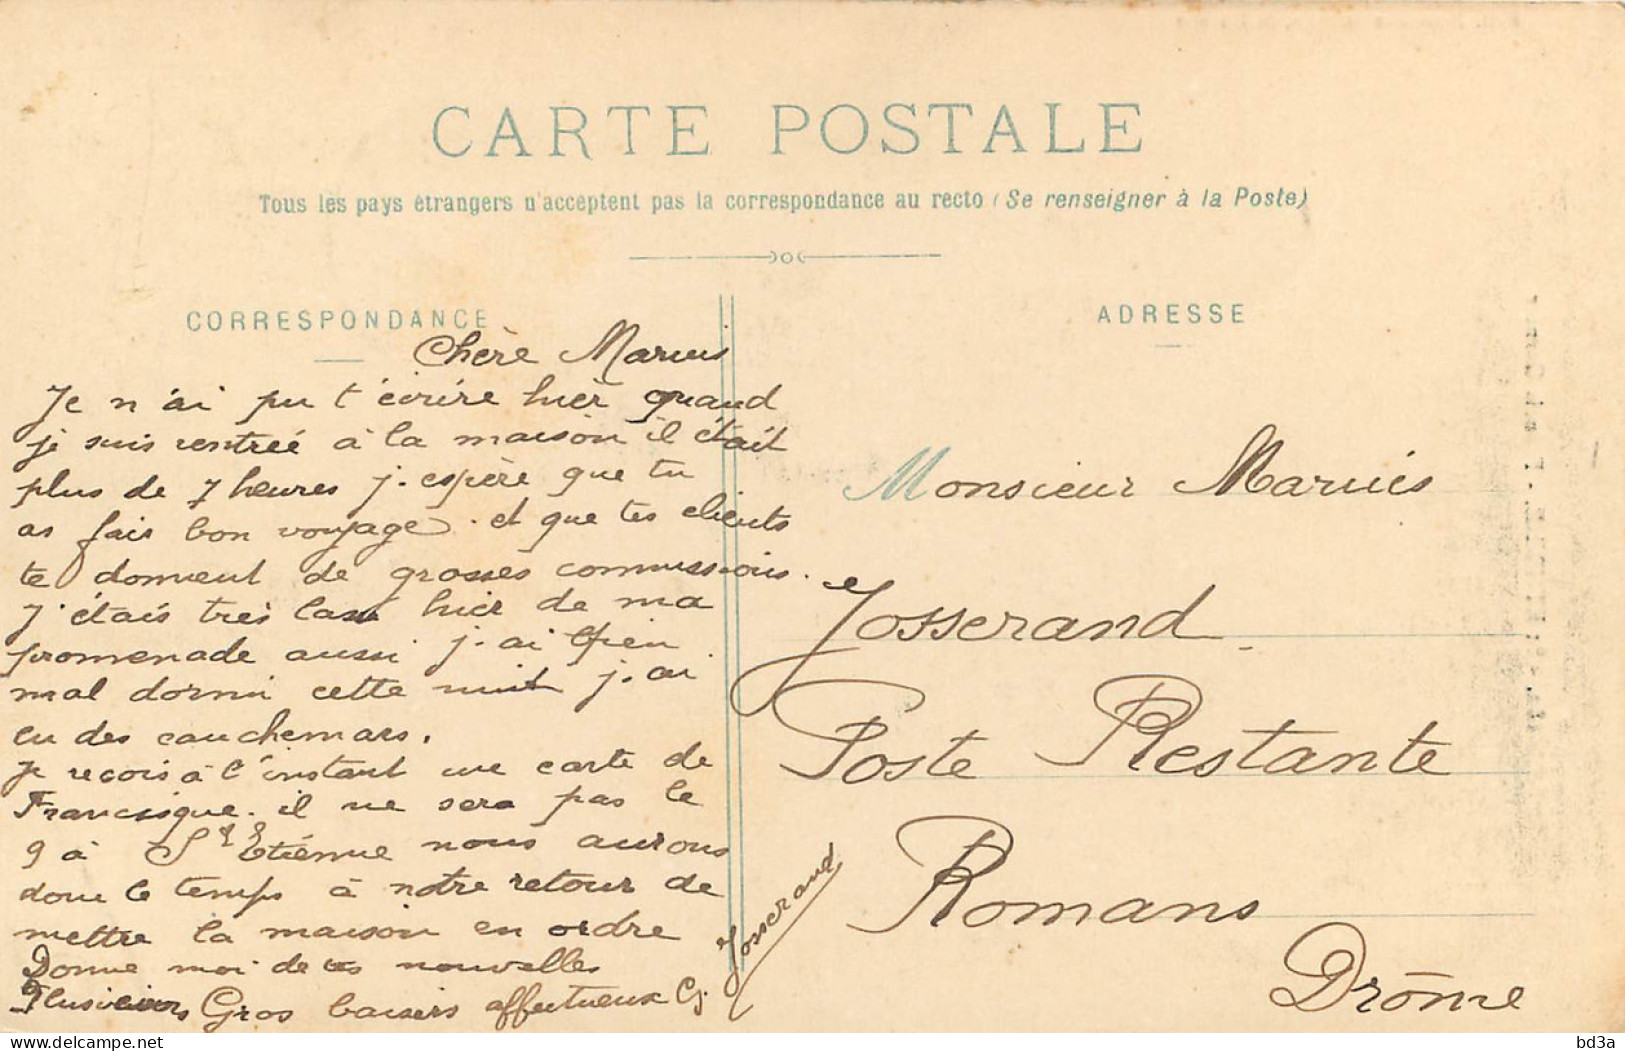 CARTE POSTALE
Tous les pays étrangers n'acceptent pas la correspondance au recto (Se renseigner à la Poste)
CORRESPONDANCE
ADRESSE
Chère Marius
Je n'ai pu t'écrire hier quand
je suis rentreé à la maison il était
plus de 7 heures j. espère que tu
as fais bon voyage. et que tes clients
te donnent de grosses commissions.
J'étais très lasse hier de ma
promenade aussi j. ai bien
mal dormi cette nuit j. ai
eu des cauchemars.
Je recois à l'instant une carte de
Francisque. il ne sera pas le
9 à St Etiénne nous aurons
donc le temps à notre retour de
mettre la maison en ordre
Donne moi de tes nouvelles
Plusieurs Gros baisers affectueux Cj.
Josserand
Monsieur Mariús
Josserand
Poste Restante
Romans
Drôme
delcampe.net
bd3a